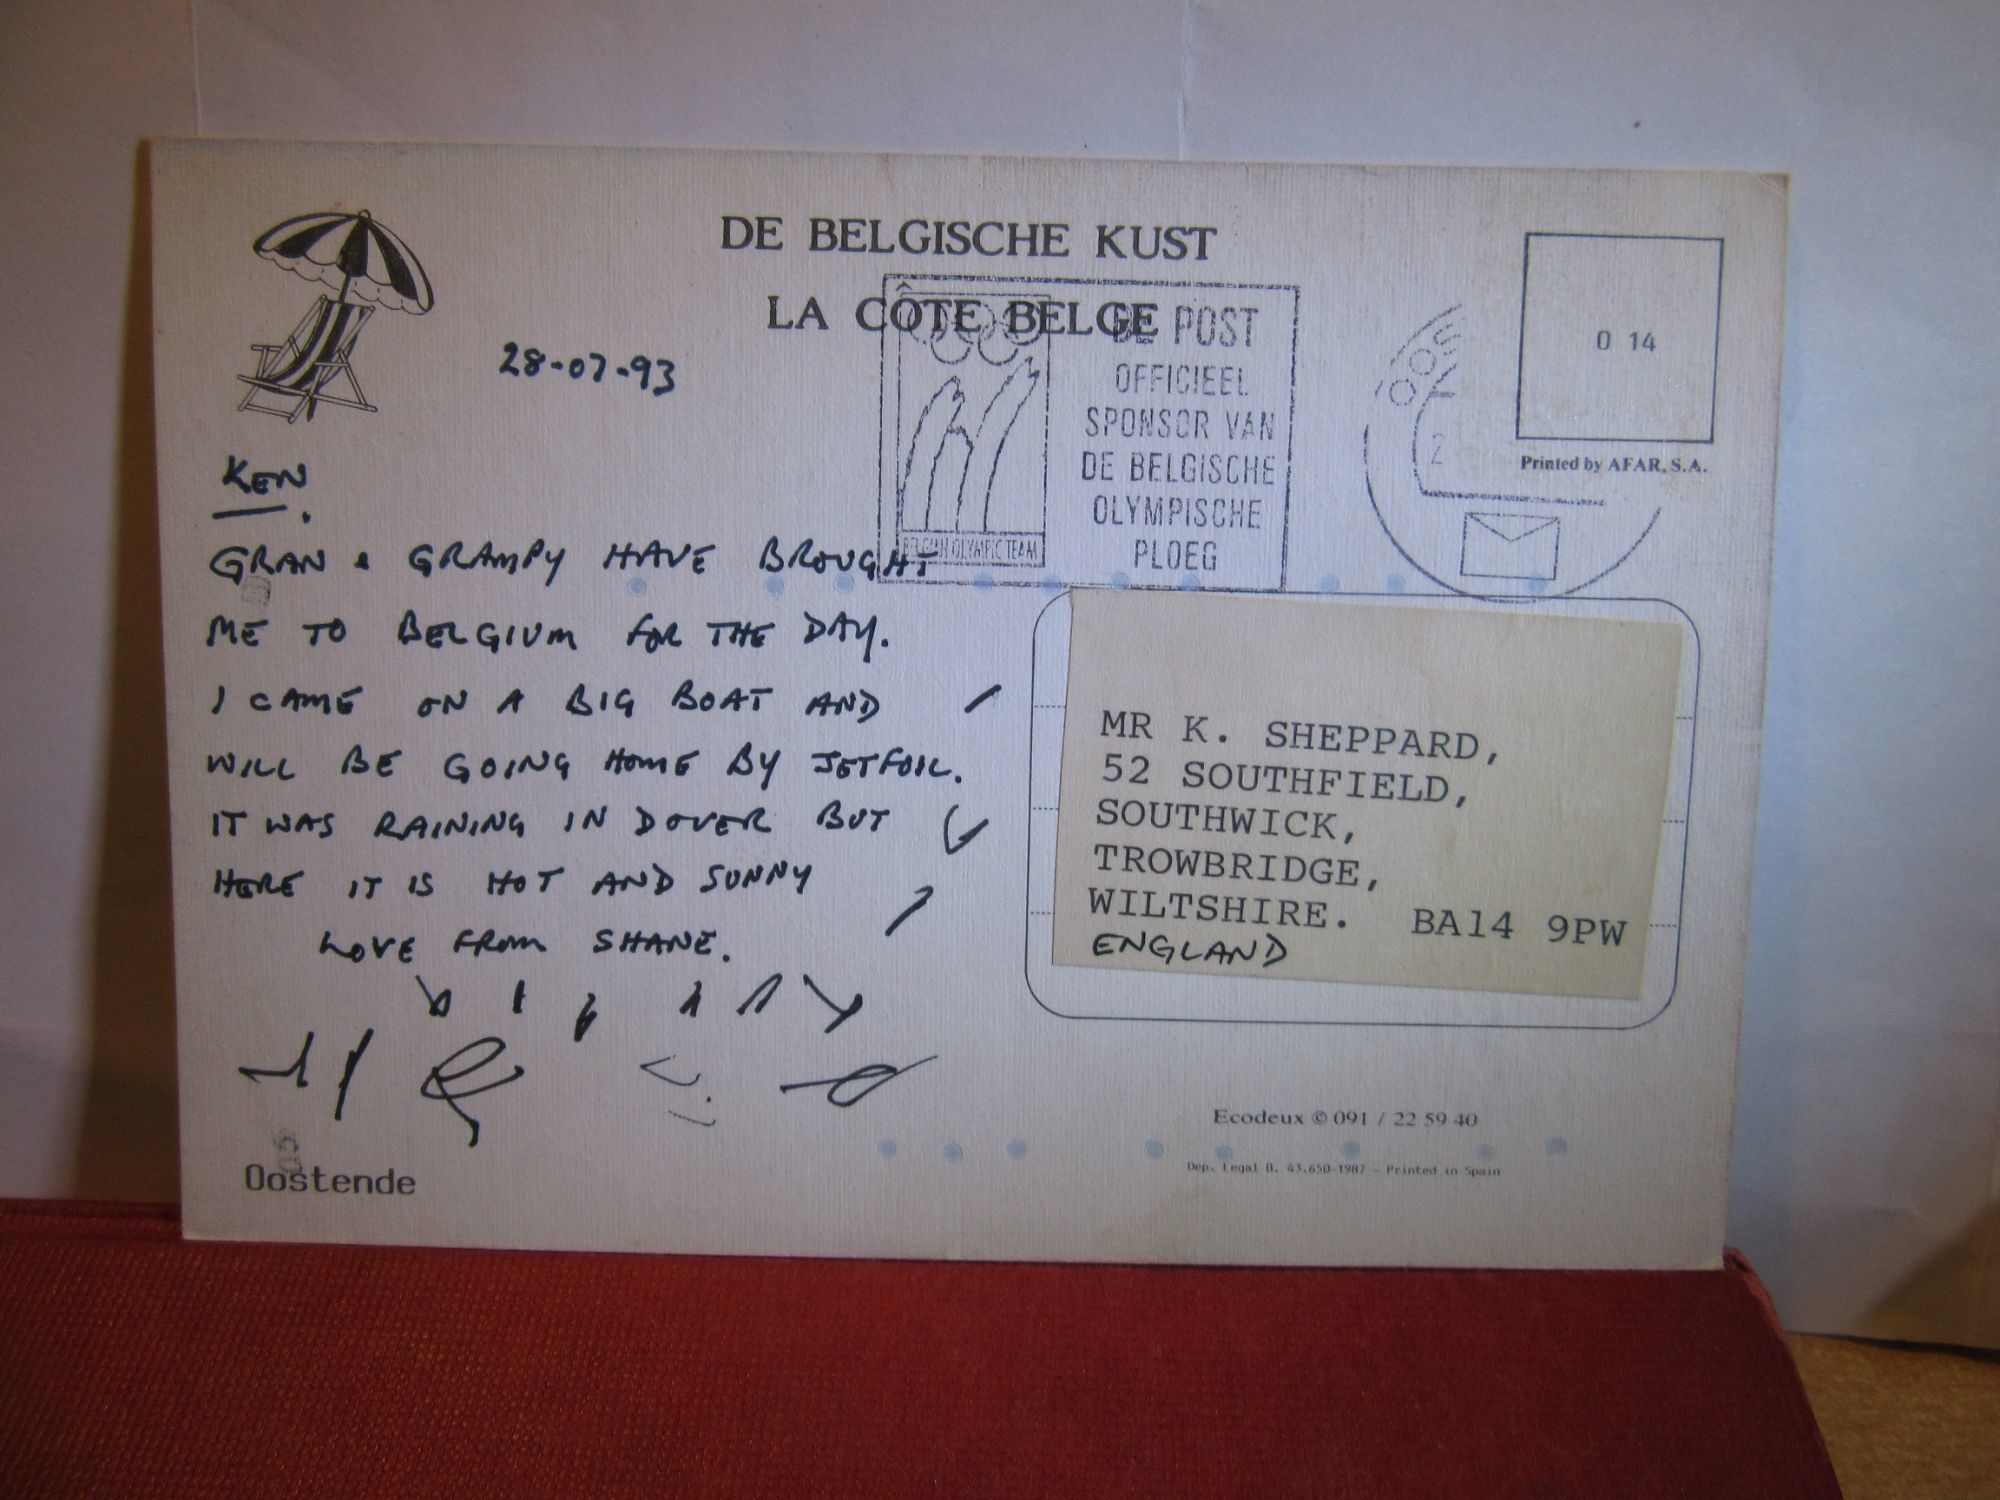 DE BELGISCHE KUST
LA CÔTE BELGE
28-07-93
DE POST
OFFICIEEL
SPONSOR VAN
DE BELGISCHE
OLYMPISCHE
PLOEG
BELGIAN OLYMPIC TEAM
2
0 14
Printed by AFAR, S.A.
KEN
GRAN & GRAMPY HAVE BROUGHT
ME TO BELGIUM FOR THE DAY.
I CAME ON A BIG BOAT AND
WILL BE GOING HOME BY JETFOIL.
IT WAS RAINING IN DOVER BUT
HERE IT IS HOT AND SUNNY
LOVE FROM SHANE.
MR K. SHEPPARD,
52 SOUTHFIELD,
SOUTHWICK,
TROWBRIDGE,
WILTSHIRE. BA14 9PW
ENGLAND
Ecodeux © 091 / 22 59 40
Dep. Legal B. 43.650-1987 - Printed in Spain
Oostende